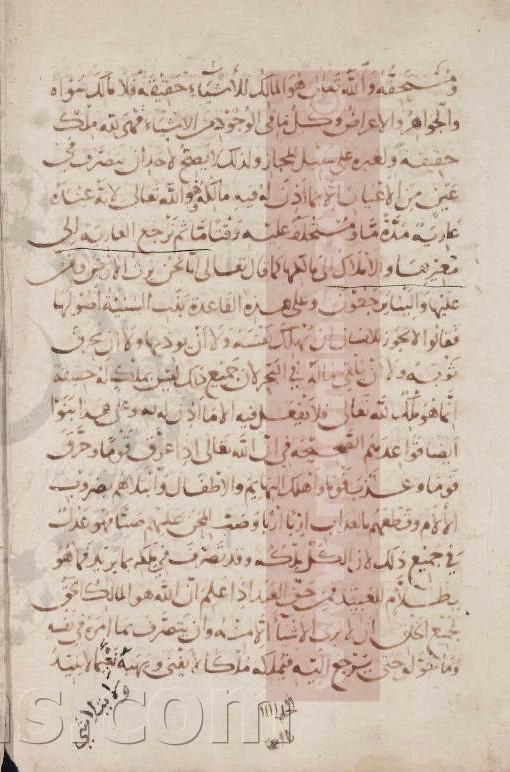 ومستحقه والله تعالى هو المالك للأشياء حقيقة فلا مالك سواه
والجواهر والاعراض وكل ما في الوجود من الاشياء فهي لله ملك
حقيقة ولغيره على سبيل المجاز ولذلك لا يصح لاحد ان يتصرف في
عين من الاعيان الا بما اذن له فيه مالكه وهو الله تعالى لانه عنده
عارية مدة ما ومستخلف عليه وقتا ما ثم ترجع العارية الى
معيرها والاملاك الى مالكها كما قال تعالى انا نحن نرث الارض ومن
عليها والينا يرجعون وعلى هذه القاعدة بنت السنية اصولها
فقالوا لا يجوز للانسان ان يهلك نفسه ولا ان يوذيها ولا ان يحرق
ثوبه ولا ان يلقي ماله في البحر لان جميع ذلك ليس بملك له حقيقة
انما هو ملك لله تعالى فلا يفعل فيه الا ما اذن له به وعلى هذا بنوا
ايضا قواعدهم الصحيحة في ان الله تعالى اذا غرق قوما وحرق
قوما وعذب قوما واهلك البهايم والاطفال وابتلاهم بضروب
الآلام وقطعهم بالعذاب اربا اربا وصب المحن عليهم صبا فهو عدل
في جميع ذلك لان الكل ملكه وقد تصرف في ملكه بما يريد فما هو
بظلام للعبيد فمن حق العبد اذا علم ان الله هو المالك الحق
لجميع الخلق ان لا يرى الاشيا الا منه وان يتصرف بما امره في نفسه
وماله حتى يسترجع اليه فيملكه ملكا لا يفنى ويهبه نعيما لا يبيد
ولا ينتهي
www.
.com